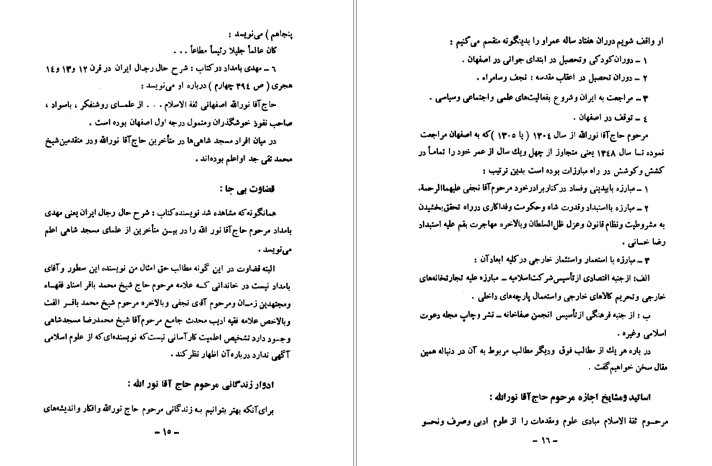 پنجاهم ) می‌نویسد :
کان عالماً جلیلا رئیساً مطاعاً . . .
۶ – مهدی بامداد در کتاب : شرح حال رجال ایران در قرن ۱۲ و ۱۳ و ۱۴
هجری ( ص ۳۹۴ چهارم ) درباره او می‌نویسد :
حاج‌آقا نورالله اصفهانی ثقة الاسلام . . . از علمای روشنفکر ، باسواد ،
صاحب نفوذ خوشگذران ومتمول درجه اول اصفهان بوده است .
در میان افراد مسجد شاهی‌ها در متأخرین حاج‌آقا نورالله ودر متقدمین شیخ
محمد تقی جد او اعلم بوده‌اند .
قضاوت بی جا :
همانگونه‌که مشاهده شد نویسنده کتاب : شرح حال رجال ایران یعنی مهدی
بامداد مرحوم حاج‌آقا نور الله را در بین متأخرین از علمای مسجد شاهی اعلم
می‌نویسد .
البته قضاوت در این گونه مطالب حق امثال من نویسنده این سطور و آقای
بامداد نیست در خاندانی که علامه مرحوم حاج شیخ محمد باقر استاد فقهاء
ومجتهدین زمان ومرحوم آقای نجفی وبالاخره مرحوم شیخ محمد باقر الفت
وبالاخص علامه فقیه ادیب محدث جامع مرحوم آقا شیخ محمدرضا مسجدشاهی
وجود دارد تشخیص اعلمیت کارآسانی نیست‌که نویسنده‌ای‌که از علوم اسلامی
آگهی ندارد درباره آن اظهار نظر کند .
ادوار زندگانی مرحوم حاج آقا نور الله :
برای‌آنکه بهتر بتوانیم به زندگانی مرحوم حاج نورالله وافکار واندیشه‌های
– ۱۵ –
او واقف شویم دوران هفتاد ساله عمر او را بدینگونه منقسم می‌کنیم :
۱ – دوران‌کودکی وتحصیل در ابتدای جوانی در اصفهان .
۲ – دوران تحصیل در اعتاب مقدسه : نجف وسامراء .
۳ – مراجعت به ایران وشروع بفعالیت‌های علمی واجتماعی وسیاسی .
۴ – توقف در اصفهان .
مرحوم حاج‌آقا نورالله از سال ۱۳۰۴ ( یا ۱۳۰۵ )که به اصفهان مراجعت
نموده تا سال ۱۳۴۸ یعنی متجاوز از چهل ویك سال از عمر خود را تماماً در
کشش وکوشش در راه مبارزات بوده است بدین ترتیب :
۱ – مبارزه بابیدینی وفساد در کنار برادرخود مرحوم‌آقا نجفی علیهماالرحمة.
۲ – مبارزه بااستبداد وقدرت شاه وحکومت وفداکاری درراه تحقق‌بخشیدن
به مشروطیت ونظام قانون وعزل ظل‌السلطان وبالاخره مهاجرت بقم علیه استبداد
رضا خانی .
۳ – مبارزه با استعمار واستثمار خارجی درکلیه ابعاد آن :
الف: ازجنبه اقتصادی ازتأسیس شرکت‌اسلامیه – مبارزه علیه تجارتخانه‌های
خارجی وتحریم کالاهای خارجی واستعمال پارچه‌های داخلی .
ب : از جنبه فرهنگی ازتأسیس انجمن صفاخانه – نشر وچاپ مجله دعوت
اسلامی وغیره .
در باره هر یك از مطالب فوق ودیگر مطالب مربوط به آن در دنباله همین
مقال سخن خواهیم‌گفت .
اساتید ومشایخ اجازه مرحوم حاج‌آقا نورالله :
مرحوم ثقة الاسلام مبادی علوم ومقدمات را از علوم ادبی وصرف ونحو
– ۱۶ –